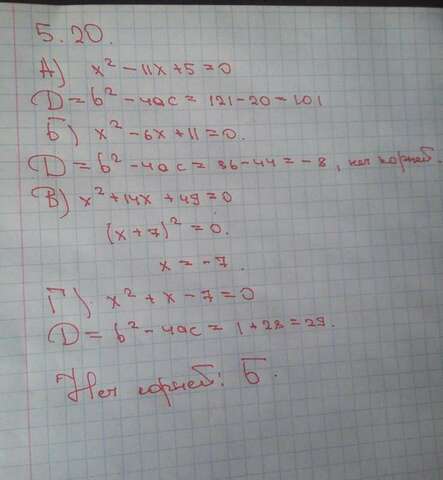 5.20.
А) x² - 11x + 5 = 0
D = b² - 4ac = 121 - 20 = 101
Б) x² - 6x + 11 = 0.
D = b² - 4ac = 36 - 44 = -8, нет корней.
В) x² + 14x + 49 = 0
(x + 7)² = 0.
x = -7.
Г) x² + x - 7 = 0
D = b² - 4ac = 1 + 28 = 29.
Нет корней: Б.